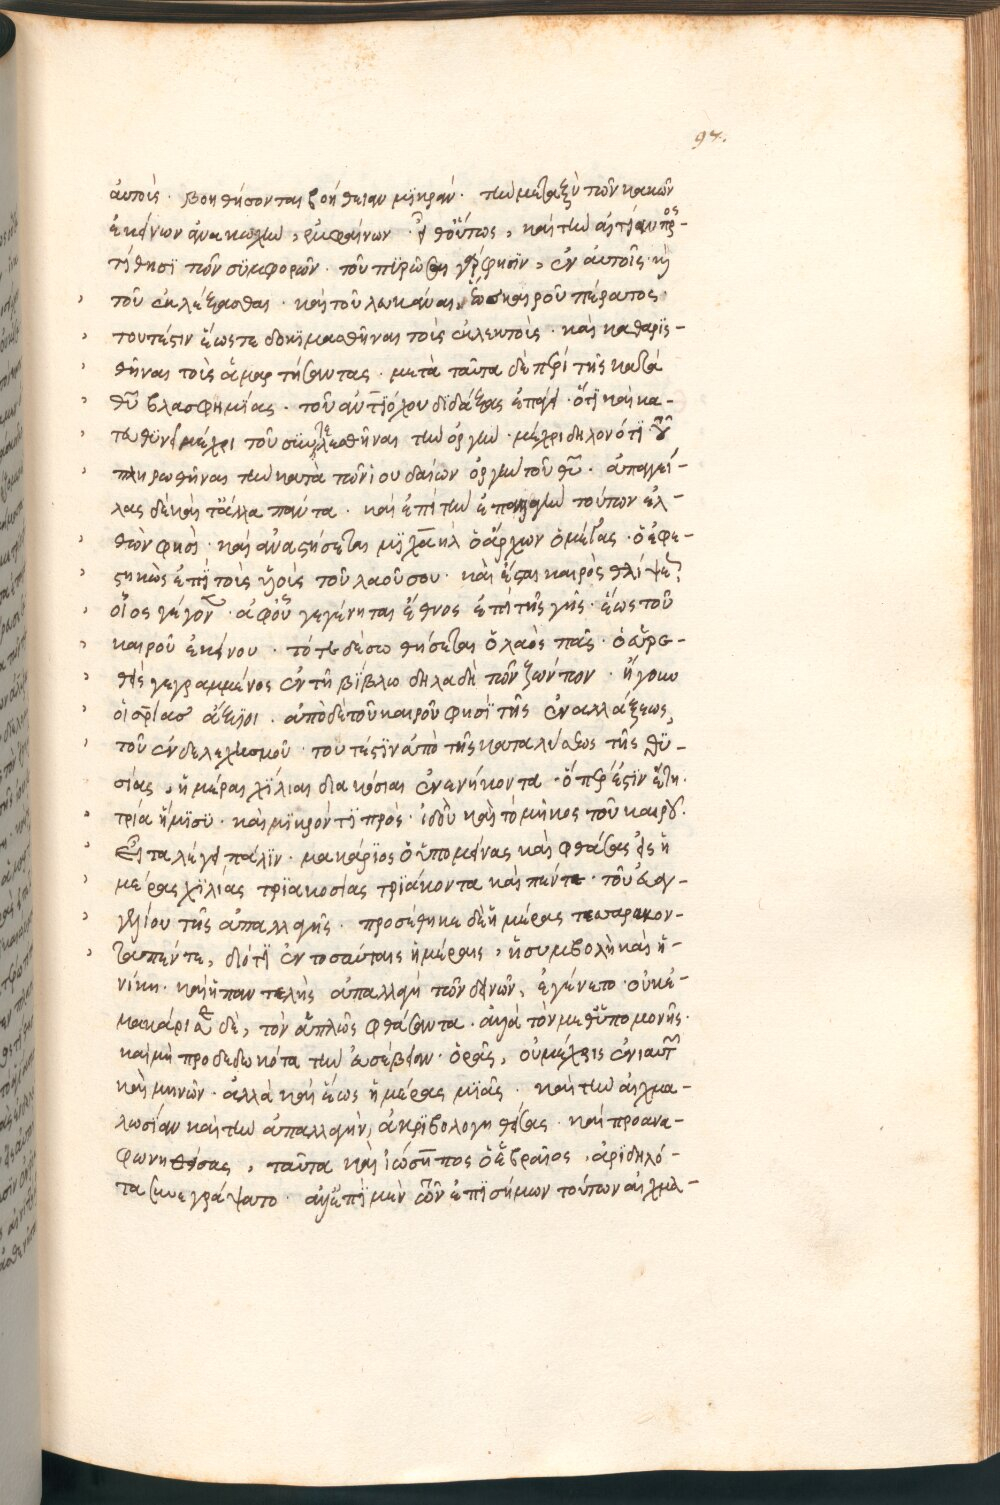 97.
αὐτοῖς · βοηθήσονται βοήθειαν μϊκράν · τὴν μεταξὺ τῶν κακῶν
ἐκείνων ἀνακωχὴν, ἐμφαίνων · εἶθ οὕτως, καὶ τὴν αἰτίαν προσ-
τίθησϊ τῶν σϋμφορῶν · τοῦ πϋρῶσαι γάρ φησϊν, ἐν αὐτοῖς κὶ
τοῦ ἐκλέξασθαι · καὶ τοῦ λευκάναι, ἕως καιροῦ πέρατος·
τουτέστιν ἕως τε δοκϊμασθῆναι τοὺς ἐκλεκτοὺς · καὶ καθαρϊσ-
θῆναι τοὺς ἁμαρτήσαντας · μετὰ ταῦτα δὲ περὶ τῆς κατὰ
θυ βλασφημίας · τοῦ ἀντϊόχου διδάξας ἐπάγει · ὅτϊ καὶ κα-
τευθϋνεῖ μέχρι τοῦ συντελεσθῆναι τὴν ὀργὴν · μέχρι δηλονότι τοῦ
πληρωθῆναι τὴν κατὰ τῶν ϊουδαίων ὀργὴν τοῦ θυ · ἀπαγγεί-
λας δὲ καὶ τἄλλα πάντα · καὶ ἐπὶ τὴν ἐπαγωγὴν τούτων ἐλ-
θών φησὶ · καὶ ἀναστήσεται μϊχαὴλ ὁ ἄρχων ὁ μέγας · ὁ ἐφε-
στηκὼς ἐπὶ τοὺς υἱοὺς τοῦ λαοῦ σου · καὶ ἔσται καιρὸς θλίψεως
οἷος γέγονεν · ἀφ οὗ γεγένηται ἔθνος ἐπὶ τῆς γῆς · ἕως τοῦ
καιροῦ ἐκείνου · τότε δὲ σωθήσεται ὁ λαὸς πᾶς · ὁ εὑρε-
θεὶς γεγραμμένος ἐν τῇ βίβλω δηλαδὴ τῶν ζώντων · ἤγουν
οἱ σρίας ἄξϊοι · ἀπὸ δὲ τοῦ καιροῦ φησὶ τῆς ἐναλλάξεως,
τοῦ ἐνδελεχισμοῦ · τουτέστϊν ἀπὸ τῆς καταλύσεως τῆς θϋ-
σίας, ἡμέραι χϊλίαι διακόσιαι ἐνενήκοντα · ὅπερ ἐστϊν ἔτη·
τρία ἥμισϋ · καὶ μϊκρόν τϊ πρὸς · ἰδοὺ καὶ τὸ μῆκος τοῦ καιροῦ·
Εἶτα λέγει πάλϊν · μακάρϊος ὁ ὑπομείνας καὶ φθάσας εἰς ἡ
μέρας χϊλίας τρϊακοσίας τρϊάκοντα καὶ πέντε · τοῦ εὐαγ-
γελίου τῆς ἀπαλλαγῆς · προσέθηκε δὲ ἡμέρας τεσσαράκον-
ταπέντε, διότϊ ἐν τοσαύταις ἡμέραις, ἡ συμβολὴ καὶ ἡ-
νίκη · καὶ ἡ παντελὴς ἀπαλλαγὴ τῶν δεινῶν, ἐγένετο · οὐκ ἐ-
μακάρισε δὲ, τὸν ἁπλῶς φθάσαντα · ἀλλὰ τὸν μεθ ὑπομονῆς·
καὶ μὴ προδεδωκότα τὴν εὐσέβειαν · ὁρᾶς, οὐ μέχρις ἐνιαυτῶν
καὶ μηνῶν · ἀλλὰ καὶ ἕως ἡμέρας μϊᾶς · καὶ τὴν αἰχμα-
λωσίαν καὶ τὴν ἀπαλλαγὴν, ἀκρϊβολογηθείσας · καὶ προανα-
φωνηθείσας, ταῦτα καὶ ϊώσηπος ὁ ἑβραῖος, ἀρϊδηλό-
τα συνεγράψατο · ἀλλ ἐπὶ μὲν τῶν ἐπϊσήμων τούτων αἰχμα-